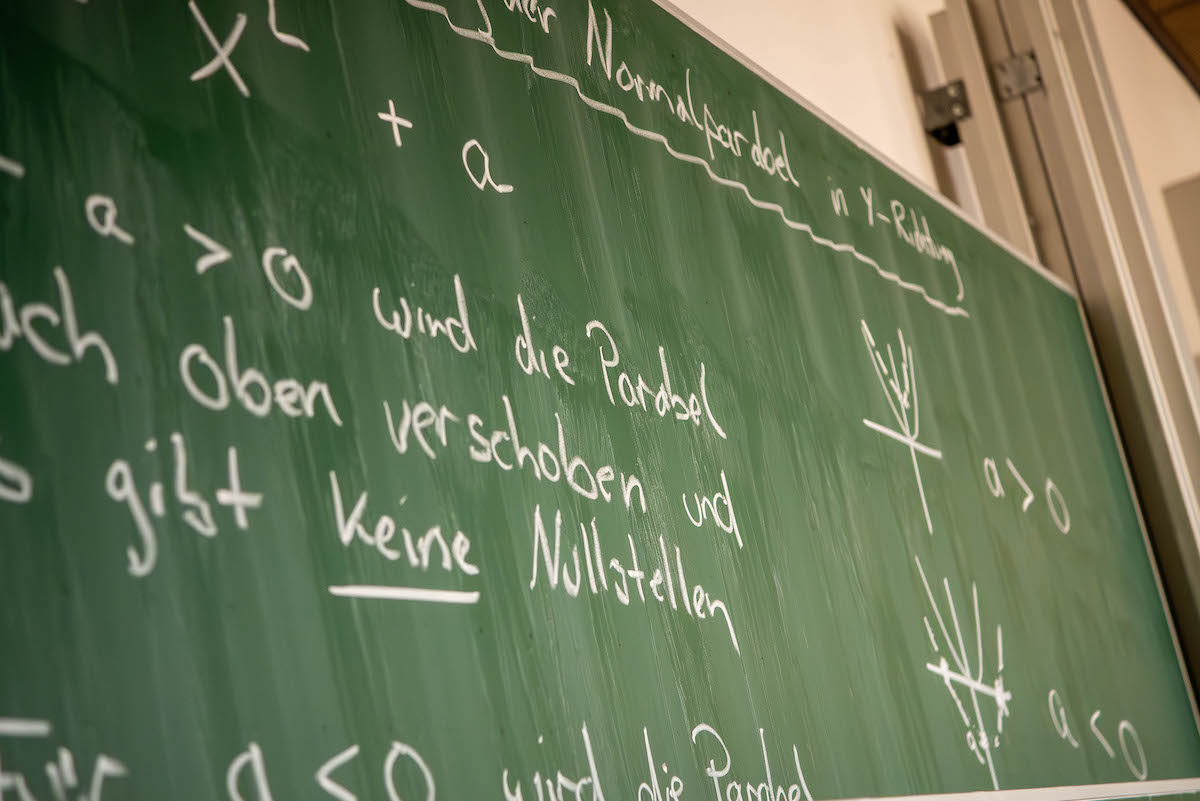 der Normalparabel in Y-Richtung
x² + a
a > 0 wird die Parabel
nach oben verschoben und
gibt keine Nullstellen
a > 0
a < 0
Für a < 0 wird die Parabel